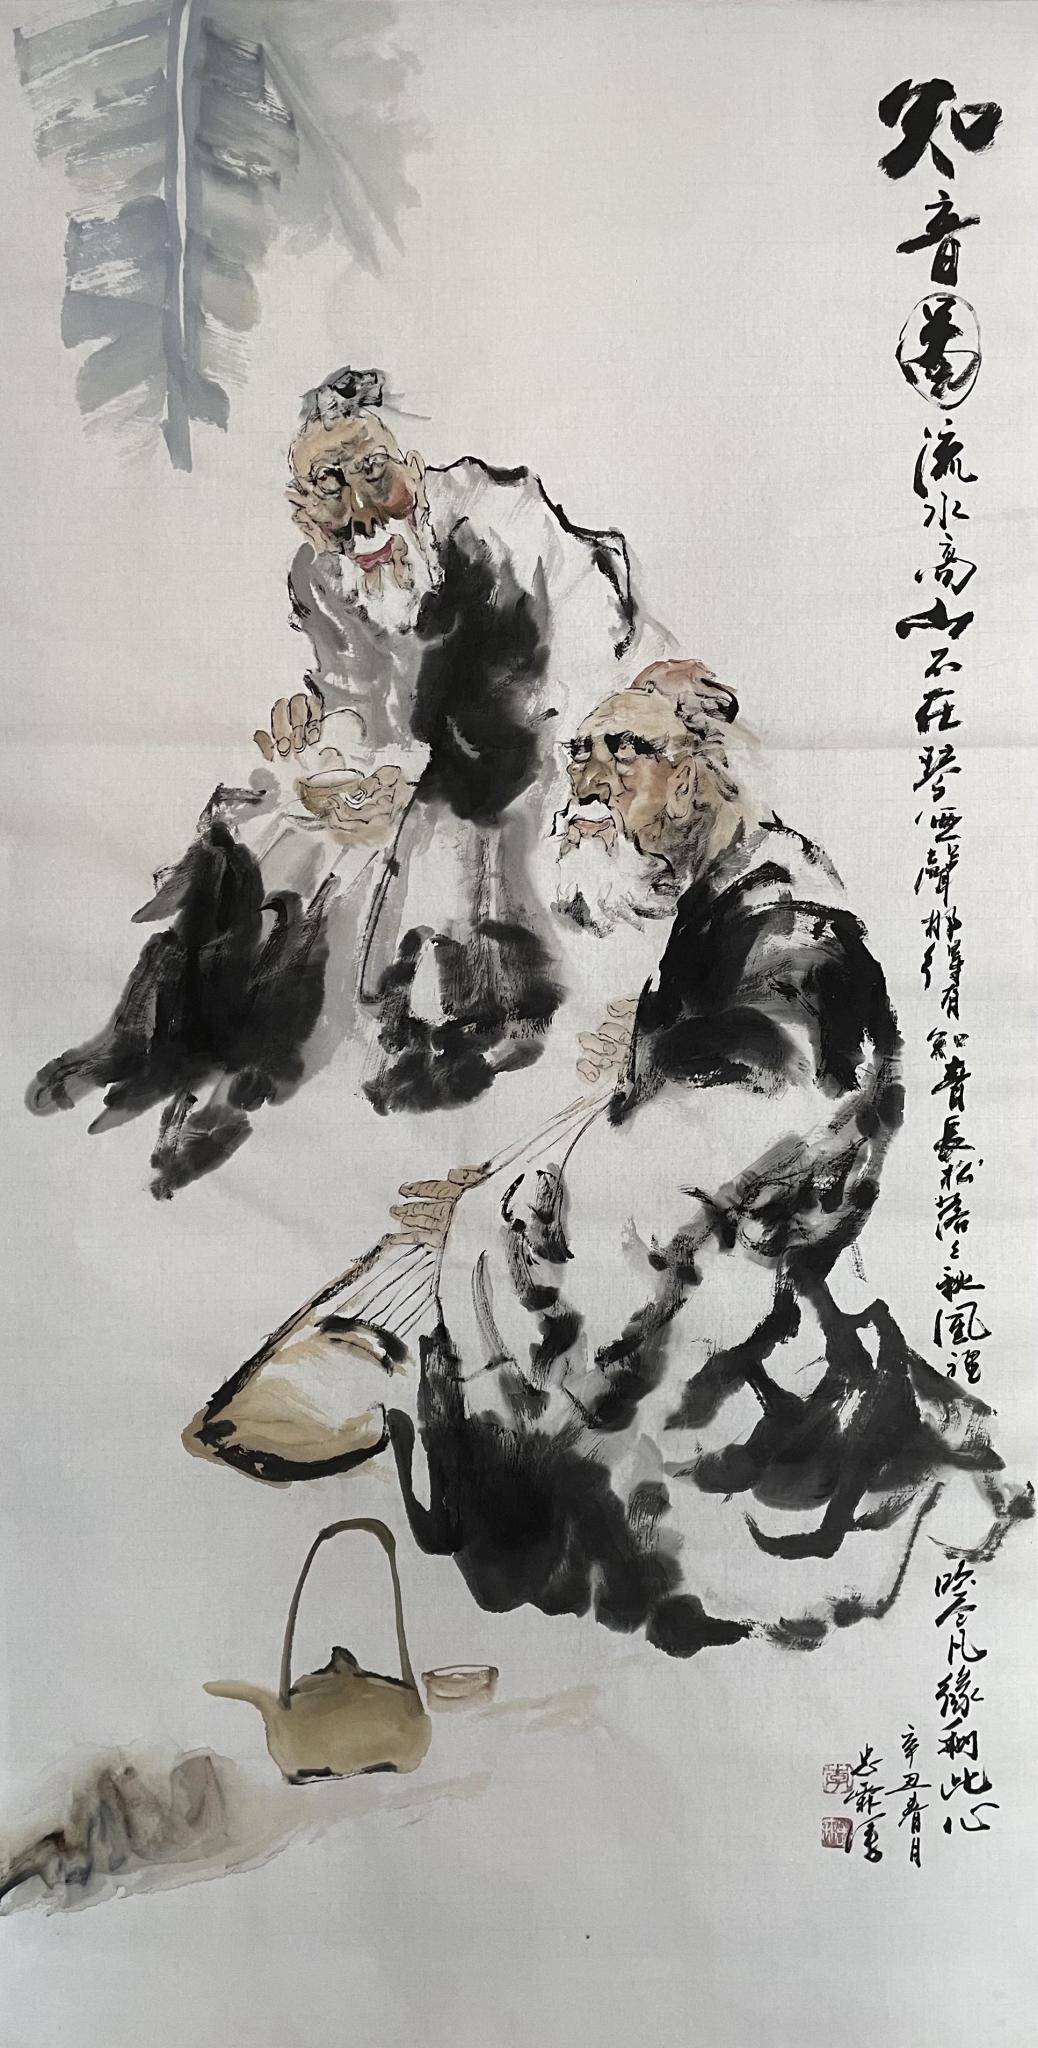 知音圖流水高山不在琴聲那得有知音長松落々秋風裡凡緣此心
辛丑春月
忠霖写